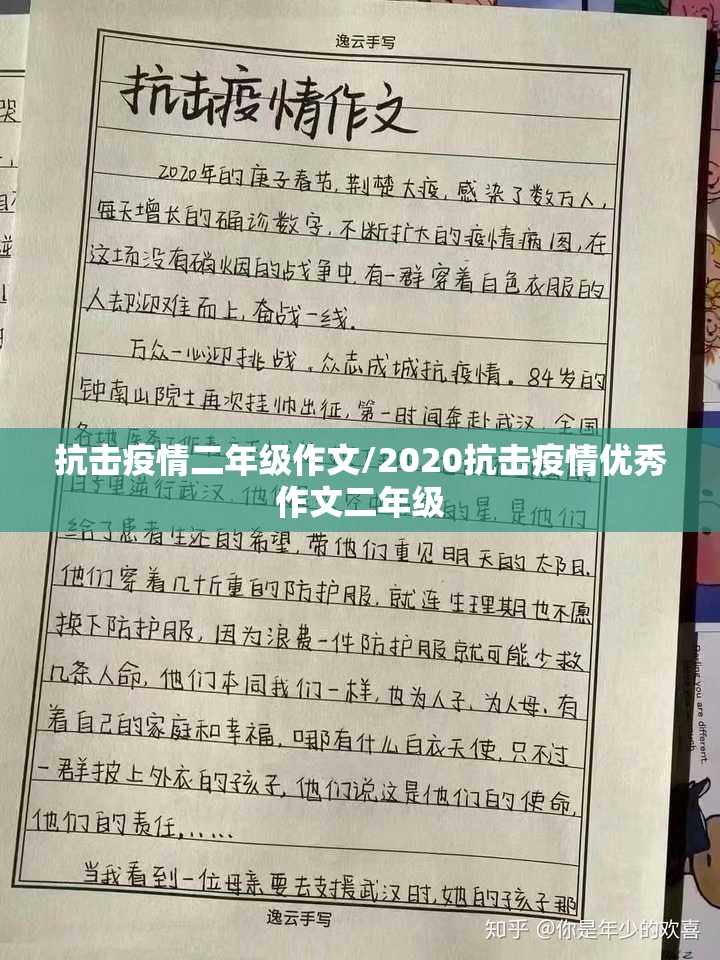 逸云手写
抗击疫情作文
2020年的庚子春节,荆楚大疫,感染了数万人,
每天增长的确诊数字,不断扩大的疫情病图,在
这场没有硝烟的战争中,有一群穿着白色衣服的
人却迎难而上,奋战一线。
万众一心迎挑战,众志成城抗疫情。84岁的
钟南山院士再次挂帅出征,第一时间奔赴武汉,全国
抗击疫情二年级作文/2020抗击疫情优秀
作文二年级
的星,是他们
给了患者生还的希望,带他们重见明天的太阳。
他们穿着几十斤重的防护服,就连生理期也不愿
换下防护服,因为浪费一件防护服就可能少救
几条人命,他们本同我们一样,也为人子,为人母,有
着自己的家庭和幸福,哪有什么白衣天使,只不过
一群披上外衣的孩子,他们说这是他们的使命,
他们的责任......
当我看到一位母亲要去支援武汉时,她的孩子那
逸云手写
知乎 @你是年少的欢喜